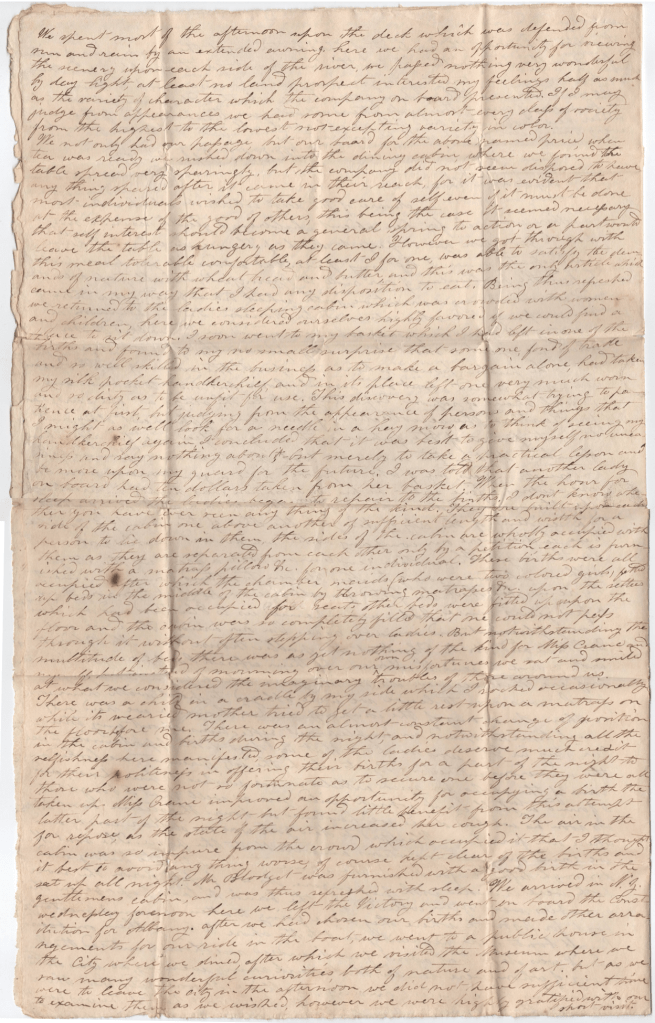 We spent most of the afternoon upon the deck which was defended from
sun and rain by an extended awning, here we had an oportunity for viewing
the scenery upon each side of the river, we passed nothing very wonderful
by day light, at least no land prospect interested my feelings half as much
as the variety of character which the company on board presented. If I may
judge from appearances we had some from almost every class of society
from the highest to the lowest not excepting variety in color.
We not only had our passage but our board for the above named price when
tea was ready we rushed down into the dining cabin where we found the
table spread very sparingly, but the company did not seem disposed to have
any thing spared after it came in their reach, for it was evident that
most individuals wished to take good care of self even if it must be done
at the expense of the good of others, this being the case it seemed necessary
that self interest should become a general spring to action or a part would
leave the table as hungry as they came. However we got through with
this meal tolerable comfortable, at least I for one, was able to satisfy the dem
ands of nature with wheat bread and butter and this was the only article which
came in my way that I had any disposition to eat. Being thus refreshed
we returned to the ladies sleeping cabin which was crowded with women
and children, here we considered ourselves highly favored if we could find a
place to sit down. I soon went to my basket which I had left in one of the
births and found to my no small surprise that some one fond of trade
and so well skilled in the business as to make a bargain alone, had taken
my silk pocket handkerchief and in its place left one very much worn
and so dirty as to be unfit for use. This discovery was somewhat trying to pa
tience at first, but judging from the appearance of persons and things that
I might as well look for a needle in a hay mow as think of seeing my
handkerchief again, I conclude that it was best to give myself no uneasi
ness and say nothing about it but merely to take a practical lesson and
be more upon my guard for the future, I was told that another lady
on board had dollars taken from her basket. When the hour for
sleep arrived the ladies began to repair to the births, I dont know whe
ther you have ever seen any thing of the kind. They are built upon each
side of the cabin one above another of sufficient length and width for a
person to lie down in them, the sides of the cabin are wholly occupied with
them as they are separated from each other only by a petition each is furn
ished with a matrass pillows &c. for one individual. These births were all
occupied after which the chamber maids (who were two colored girls) put
up beds in the middle of the cabin by throwing matrasses &c. upon the settees
which had been occupied for seats, other beds were fitted up upon the
floor and the cabin was so completely filled that one could not pass
through it without often stepping over ladies. But notwithstanding the
multitude of beds there was as yet nothing of the kind for Miss Crane and
of mourning over our misfortunes we sat and smiled
at what we considered the imaginary troubles of those around us.
There was a child in a cradle by my side which I rocked occasionally
while its wearied mother tried to get a little rest upon a matrass on
the floor before me. There was an almost constant change of position
in the cabin and births during the night and notwithstanding all the
selfishness here manifested some of the ladies deserve much credit
for their politeness in offering their births for a part of the night to
those who were not so fortunate as to secure one before they were all
taken up. Miss Crane improved an opportunity for occupying a birth the
latter part of the night but found little benefit from this attempt
for repose, as the state of the air increased her cough. The air in the
cabin was so impure from the crowd which occupied it that I thought
it best to avoid any thing worse, of course kept clear of the births and
sat up all night. Mr Blodget was furnished with a good birth in the
gentlemens cabin, and was thus refreshed with sleep. We arrived in N.Y.
wednesday forenoon here we left the Victory and went on board the Const
itution for Albany. after we had chosen our births and made other arra
ngements for our ride in the boat, we went to a public house in
the City where we dined after which we visited the Museum where we
saw many wonderful curiosities both of nature and of art. but as we
were to leave the city in the afternoon we did not have sufficient time
to examine them as we wished, however we were highly gratified with our
short visit.